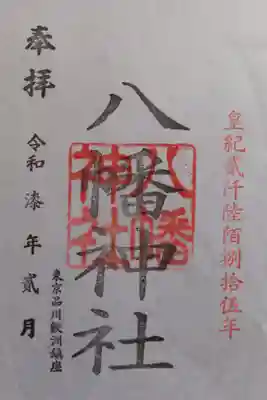 皇紀貳仟陸陌捌拾伍年
八幡神社
八幡
神社
奉拝
令和漆年貳月
東京品川鮫洲鎮座